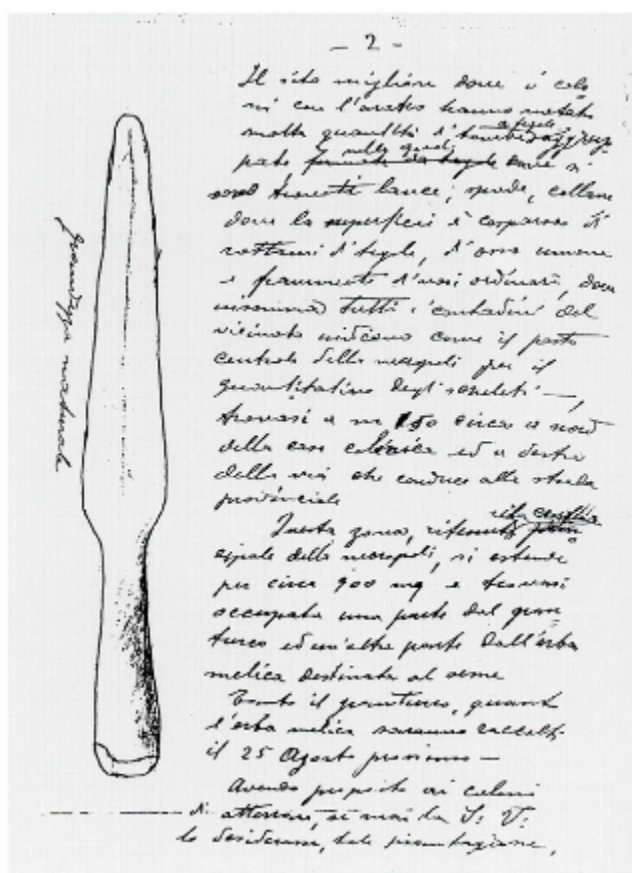 - 2 -
Il sito migliore dove i colo
ni con l'aratro hanno notato
molte quantità d'tombe
a tegole
nelle quali
pato dove si
sono trovati lance, spade, collane
dove la superficie è cosparsa di
rottami d'tegole, d'ossa umane
e frammenti d'vasi ordinari, dove
insomma tutti i contadini del
vicinato indicano come il posto
centrale della necropoli per il
quantitativo degl'scheletri —,
trovasi a m 150 circa a nord
della casa colonica ed a destra
della via che conduce alla strada
provinciale
Questa zona, ritenuta
cipale della necropoli, si estende
per circa 900 mq e trovasi
occupata una parte dal gran
turco ed un'altra parte dall'erba
melica destinata al seme
Tanto il granturco, quanto
l'erba melica saranno raccolti
il 25 Agosto prossimo —
Avendo proposto ai coloni
di atterrare, se mai la S. V.
lo desiderasse, tale piantagione,
grandezza naturale